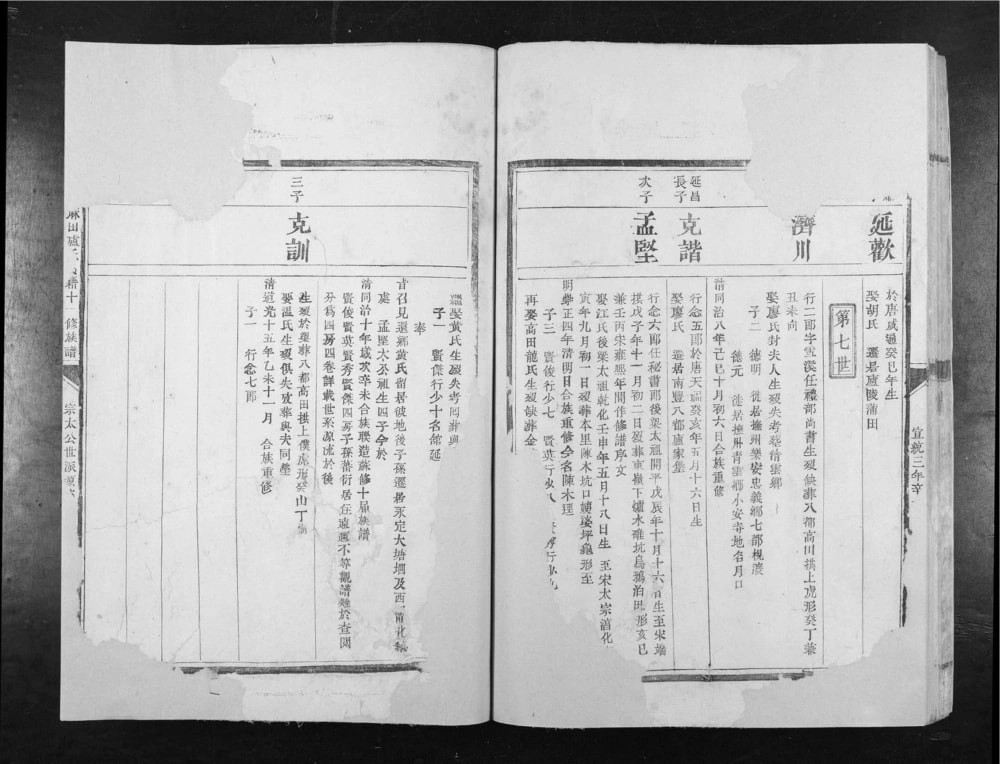 宣統三年辛
延歡
於唐咸通癸巳年生
娶胡氏 遷居廬陵蒲田
第七世
濟川
行二郎字雪溪任禮部尚書生歿缺葬八都高田拱上虎形癸丁兼
丑未向
娶廖氏封夫人生歿失考葬清雲鄉
子二 德明 徙居撫州樂安忠義鄉七都梘溪
德元 徙居撫州青雲鄉小安寺地名月口
清同治八年己巳十月初六日合族重修
延昌
長子
克諧
行念五郎於唐天福癸亥年五月十六日生
娶廖氏 遷居南豐八都廬家集
次子
孟堅
行念六郎任秘書郎後梁太祖開平戊辰年十月十六日生至宋端
拱戊子年十一月初二日歿葬東嶺下爐水碓坑烏鴉泊田形亥巳
兼壬丙宋雍熙年間作修譜序文
娶江氏後梁太祖乾化壬申年五月十八日生 至宋太宗淳化
寅年九月初一日歿葬本里陳木坑口婆坪龜形至
明崇正四年清明日合族重修今名陳木理
子三 賢俊行少七 賢英行少八
再娶高田龍氏生歿缺葬金
繼娶黃氏生歿失考同葬與
子一 賢傑行少十名館延
奉
昔召見還鄉黃氏留居彼地後子孫遷居汞定大塘堈及西
處 孟堅太公祖生四子今於
清同治十年歲次辛未合族聯造蘇修十屆族譜
賢俊賢英賢秀賢傑四房子孫蕃衍居住遠邇不等觀譜難於查閱
分爲四房四卷詳載世系原流於後
三子
克訓
生歿於梁葬八都高田拱上僕虎形癸山丁
娶溫氏生歿俱失攷葬與夫同塋
清道光十五年乙未十一月 合族重修
子一 行念七郎
麻田盧氏 十一修族譜
宗太公世派